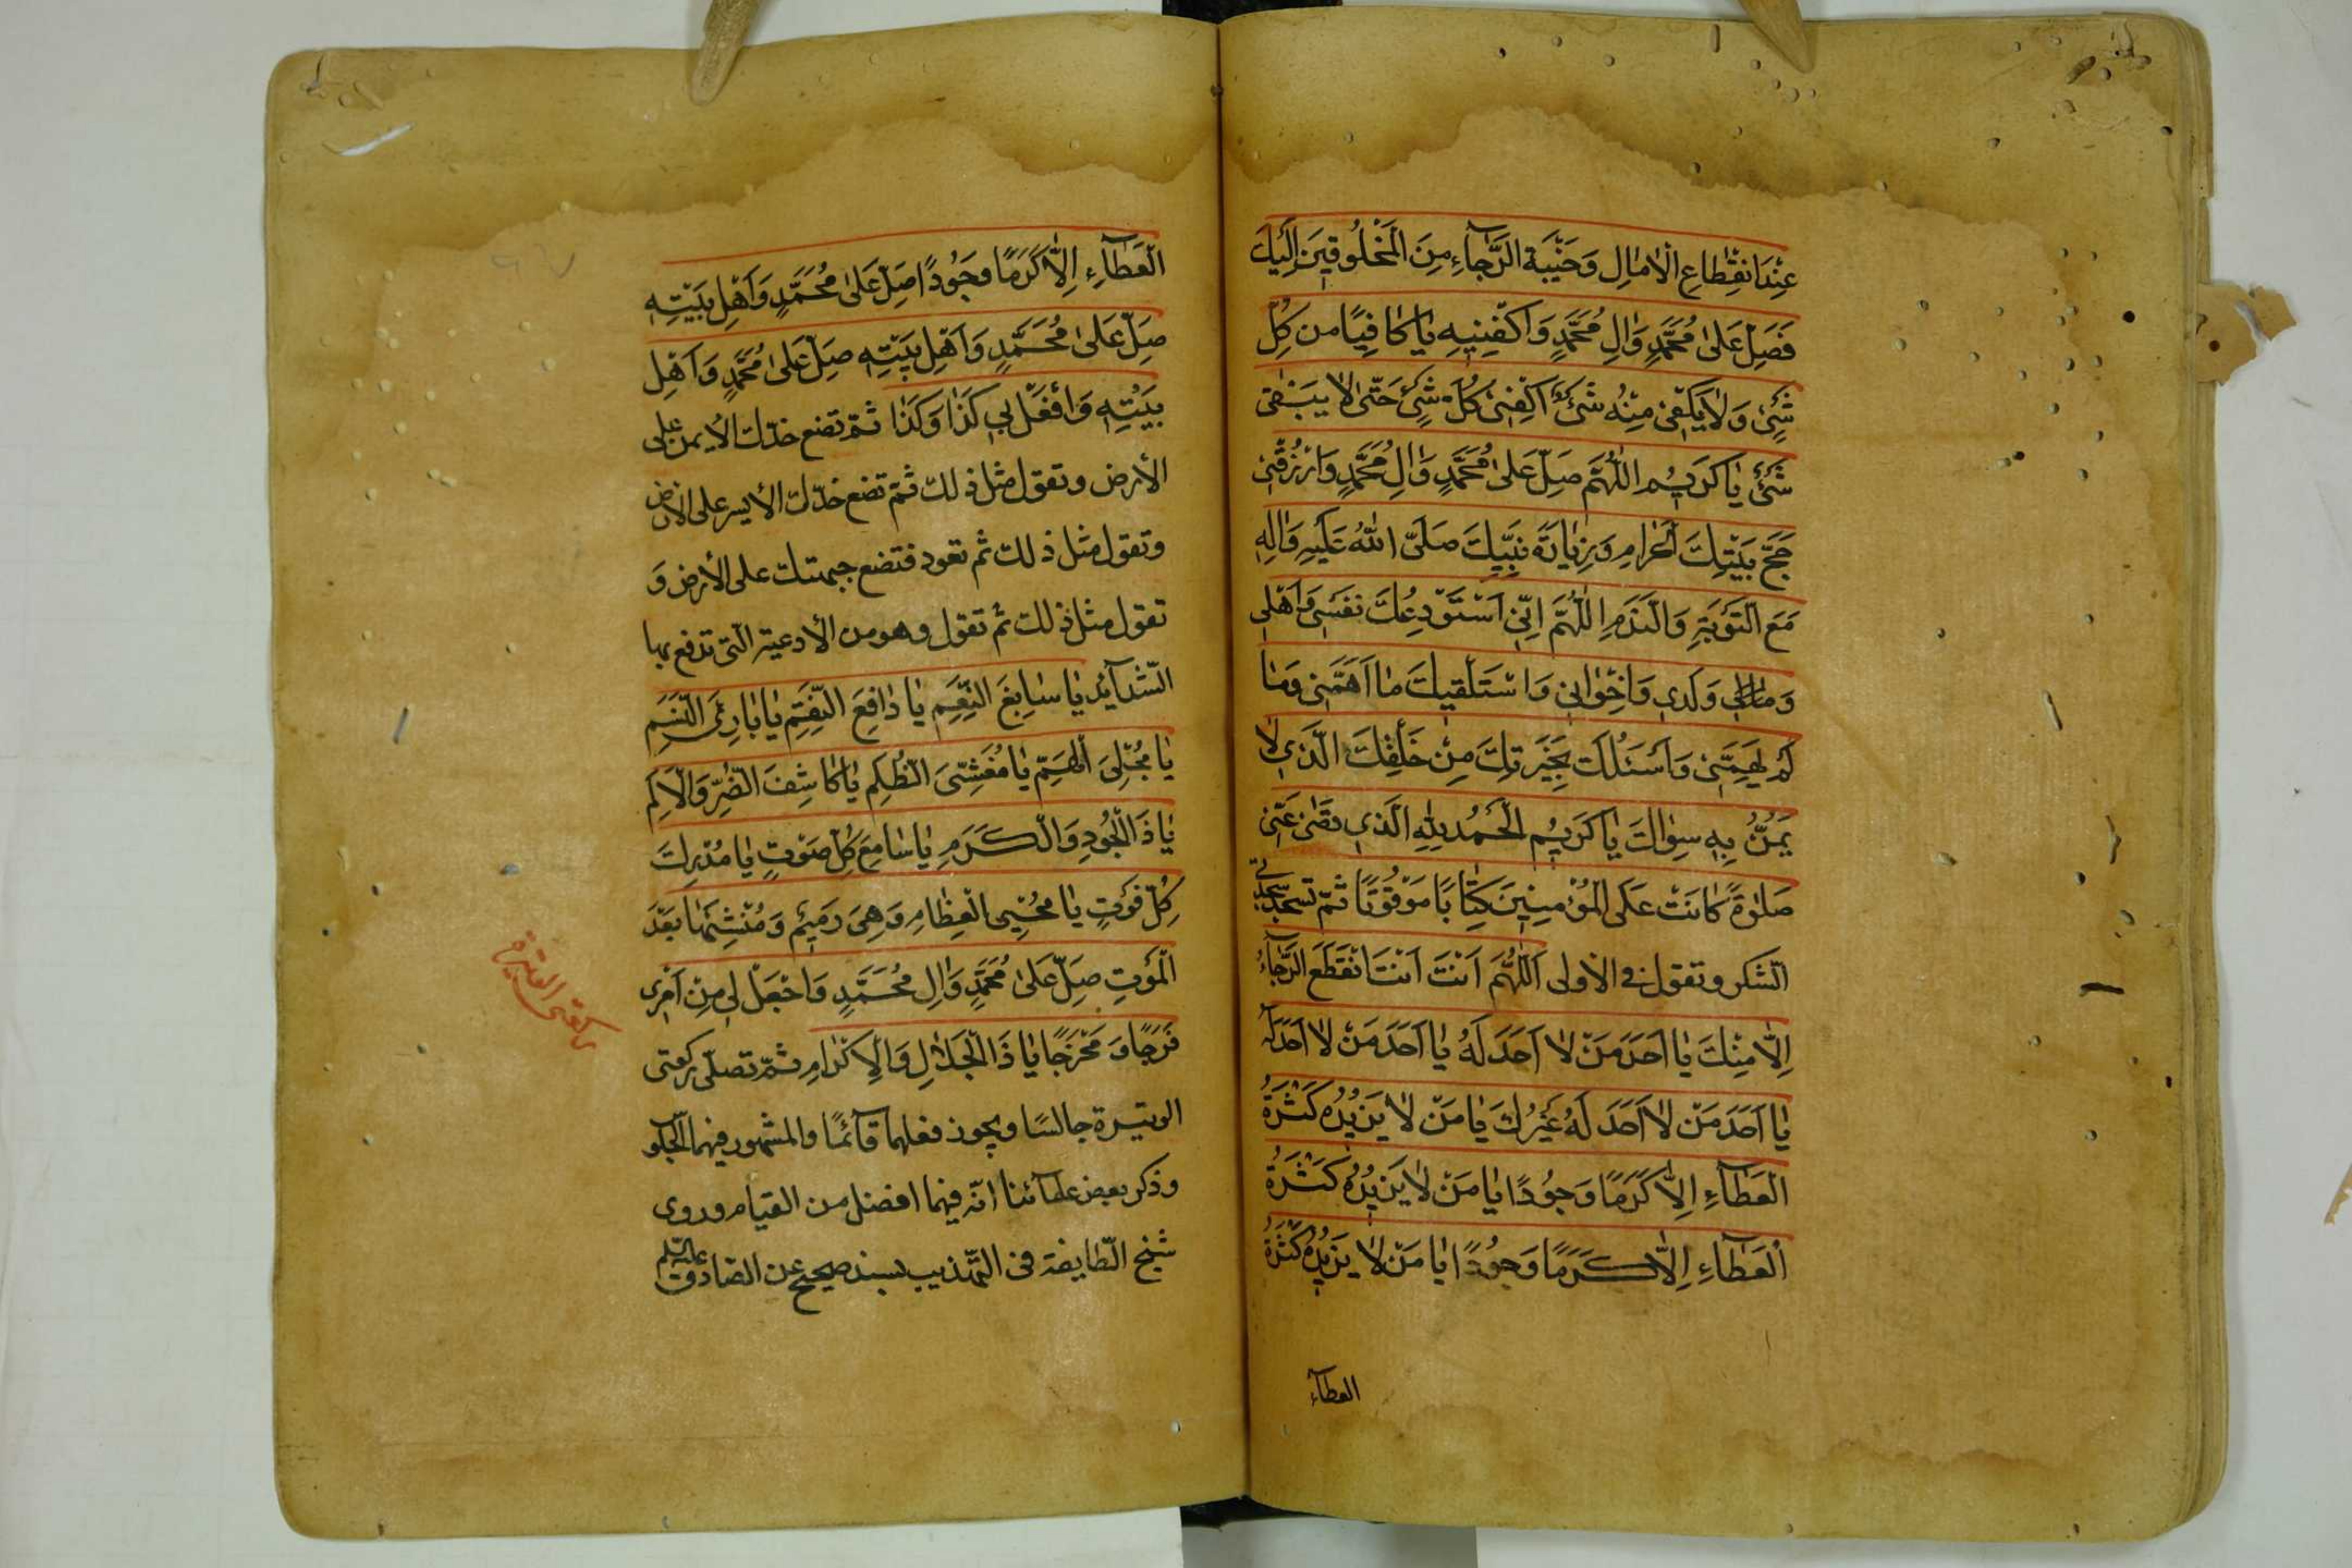 عِنْدَ انْقِطاعِ الْاٰمٰالِ وَخَيْبَةِ الرَّجآءِ مِنَ الْمَخْلُوقينَ اِلَيْكَ
فَصَلِّ عَلىٰ مُحَمَّدٍ وَاٰلِ مُحَمَّدٍ وَاكْفِنيهِ يٰا كٰافِيًا مِن كُلِّ
شَىْءٍ وَلٰا يَكْفى مِنْهُ شَىْءٌ اكْفِنى كُلَّ شَىْءٍ حَتّىٰ لٰا يَبْقى
شَىْءٌ يٰا كَريمُ اللّٰهُمَّ صَلِّ عَلىٰ مُحَمَّدٍ وَاٰلِ مُحَمَّدٍ وَارْزُقْنى
حَجَّ بَيْتِكَ الْحَرامِ وَزِيٰارَةَ نَبِيِّكَ صَلَّى اللّٰهُ عَلَيْهِ وَاٰلِهِ
مَعَ التَّوْبَةِ وَالنَّدَمِ اللّٰهُمَّ اِنّى اَسْتَوْدِعُكَ نَفْسى وَاَهْلى
وَمٰالى وَلَدى وَاِخْوٰانى وَاسْتَكْفيكَ مٰا اَهَمَّنى وَمٰا
لَمْ يُهِمَّنى وَاَسْئَلُكَ بِخِيَرَتِكَ مِنْ خَلْقِكَ الَّذى لٰا
يَمُنُّ بِهِ سِوٰاكَ يٰا كَريمُ الْحَمْدُ لِلّٰهِ الَّذى قَضٰى عَنّى
صَلٰوةً كٰانَتْ عَلَى الْمُؤْمِنينَ كِتٰابًا مَوْقُوتًا ثمّ تسجد سجدتى
الشّكر وتقول فى الاولى اَللّٰهُمَّ اَنْتَ اَنْتَ انْقَطَعَ الرَّجٰآءُ
اِلّٰا مِنْكَ يٰا اَحَدَ مَنْ لٰا اَحَدَ لَهُ يٰا اَحَدَ مَنْ لٰا اَحَدَ لَهُ
يٰا اَحَدَ مَنْ لٰا اَحَدَ لَهُ غَيْرُكَ يٰا مَنْ لٰا يَزيدُهُ كَثْرَةُ
الْعَطٰآءِ اِلّٰا كَرَمًا وَجُودًا يٰا مَنْ لٰا يَزيدُهُ كَثْرَةُ
الْعَطٰآءِ اِلّٰا كَرَمًا وَجُودًا يٰا مَنْ لٰا يَزيدُهُ كَثْرَةُ
العطآء
الْعَطٰآءِ اِلّٰا كَرَمًا وجُودًا صَلِّ عَلىٰ مُحَمَّدٍ وَاَهْلِ بَيْتِهِ
صَلِّ عَلىٰ مُحَمَّدٍ وَاَهْلِ بَيْتِهِ صَلِّ عَلىٰ مُحَمَّدٍ وَاَهْلِ
بَيْتِهِ وَافْعَلْ بى كَذٰا وَكَذٰا ثمّ تضع خدّك الأيمن على
الأرض وتقول مثل ذلك ثمّ تضع خدّك الأيسر على الأرض
وتقول مثل ذلك ثم تعود فتضع جبهتك على الأرض و
تقول مثل ذلك ثم تقول وهو من الأدعية الّتى تدفع بها
الشّدآئد يٰا سٰابِغَ النِّعَمِ يٰا دٰافِعَ النِّقَمِ يٰا بٰارِئَ النَّسَمِ
يٰا مُجَلِّىَ الْهِمَمِ يٰا مُغَشِّىَ الظُّلَمِ يٰا كٰاشِفَ الضُّرِّ وَالْاَلَمِ
يٰا ذَا الْجُودِ وَالْكَرَمِ يٰا سٰامِعَ كُلِّ صَوْتٍ يٰا مُدْرِكَ
كُلِّ فَوْتٍ يٰا مُحْيِىَ الْعِظٰامِ وَهِىَ رَميمٌ وَمُنْشِئَهٰا بَعْدَ
الْمَوْتِ صَلِّ عَلىٰ مُحَمَّدٍ وَاٰلِ مُحَمَّدٍ وَاجْعَلْ لى مِنْ اَمْرى
فَرَجًا وَمَخْرَجًا يٰا ذَا الْجَلٰالِ وَالْاِكْرٰامِ ثمّ تصلّى ركعتى
الوتيرة جالسًا ويجوز فعلهما قآئمًا والمشهور فيهما الجلو
وذكر بعض علمآئنا انّه فيهما افضل من القيام وروى
شيخ الطّايفة فى التّهذيب بسند صحيح عن الصّادق عليه السّلم
ركعتى الوتيرة